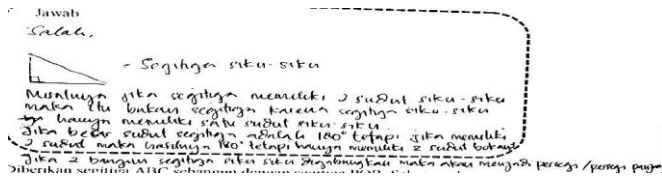 Jawab
Salah.
- Segitiga siku-siku
Misalnya jika segitiga memiliki 2 sudut siku-siku
maka itu bukan segitiga karena segitiga siku-siku
hanya memiliki satu sudut siku-siku.
Jika besar sudut segitiga adalah 180° tetapi jika memiliki
2 sudut maka hasilnya 180° tetapi hanya memiliki 2 sudut bukan
Jika 2 bangun segitiga siku siku digabungkan maka akan menjadi persegi/persegi panja
Diberikan segitiga ABC sebangun dengan segitiga PQR.